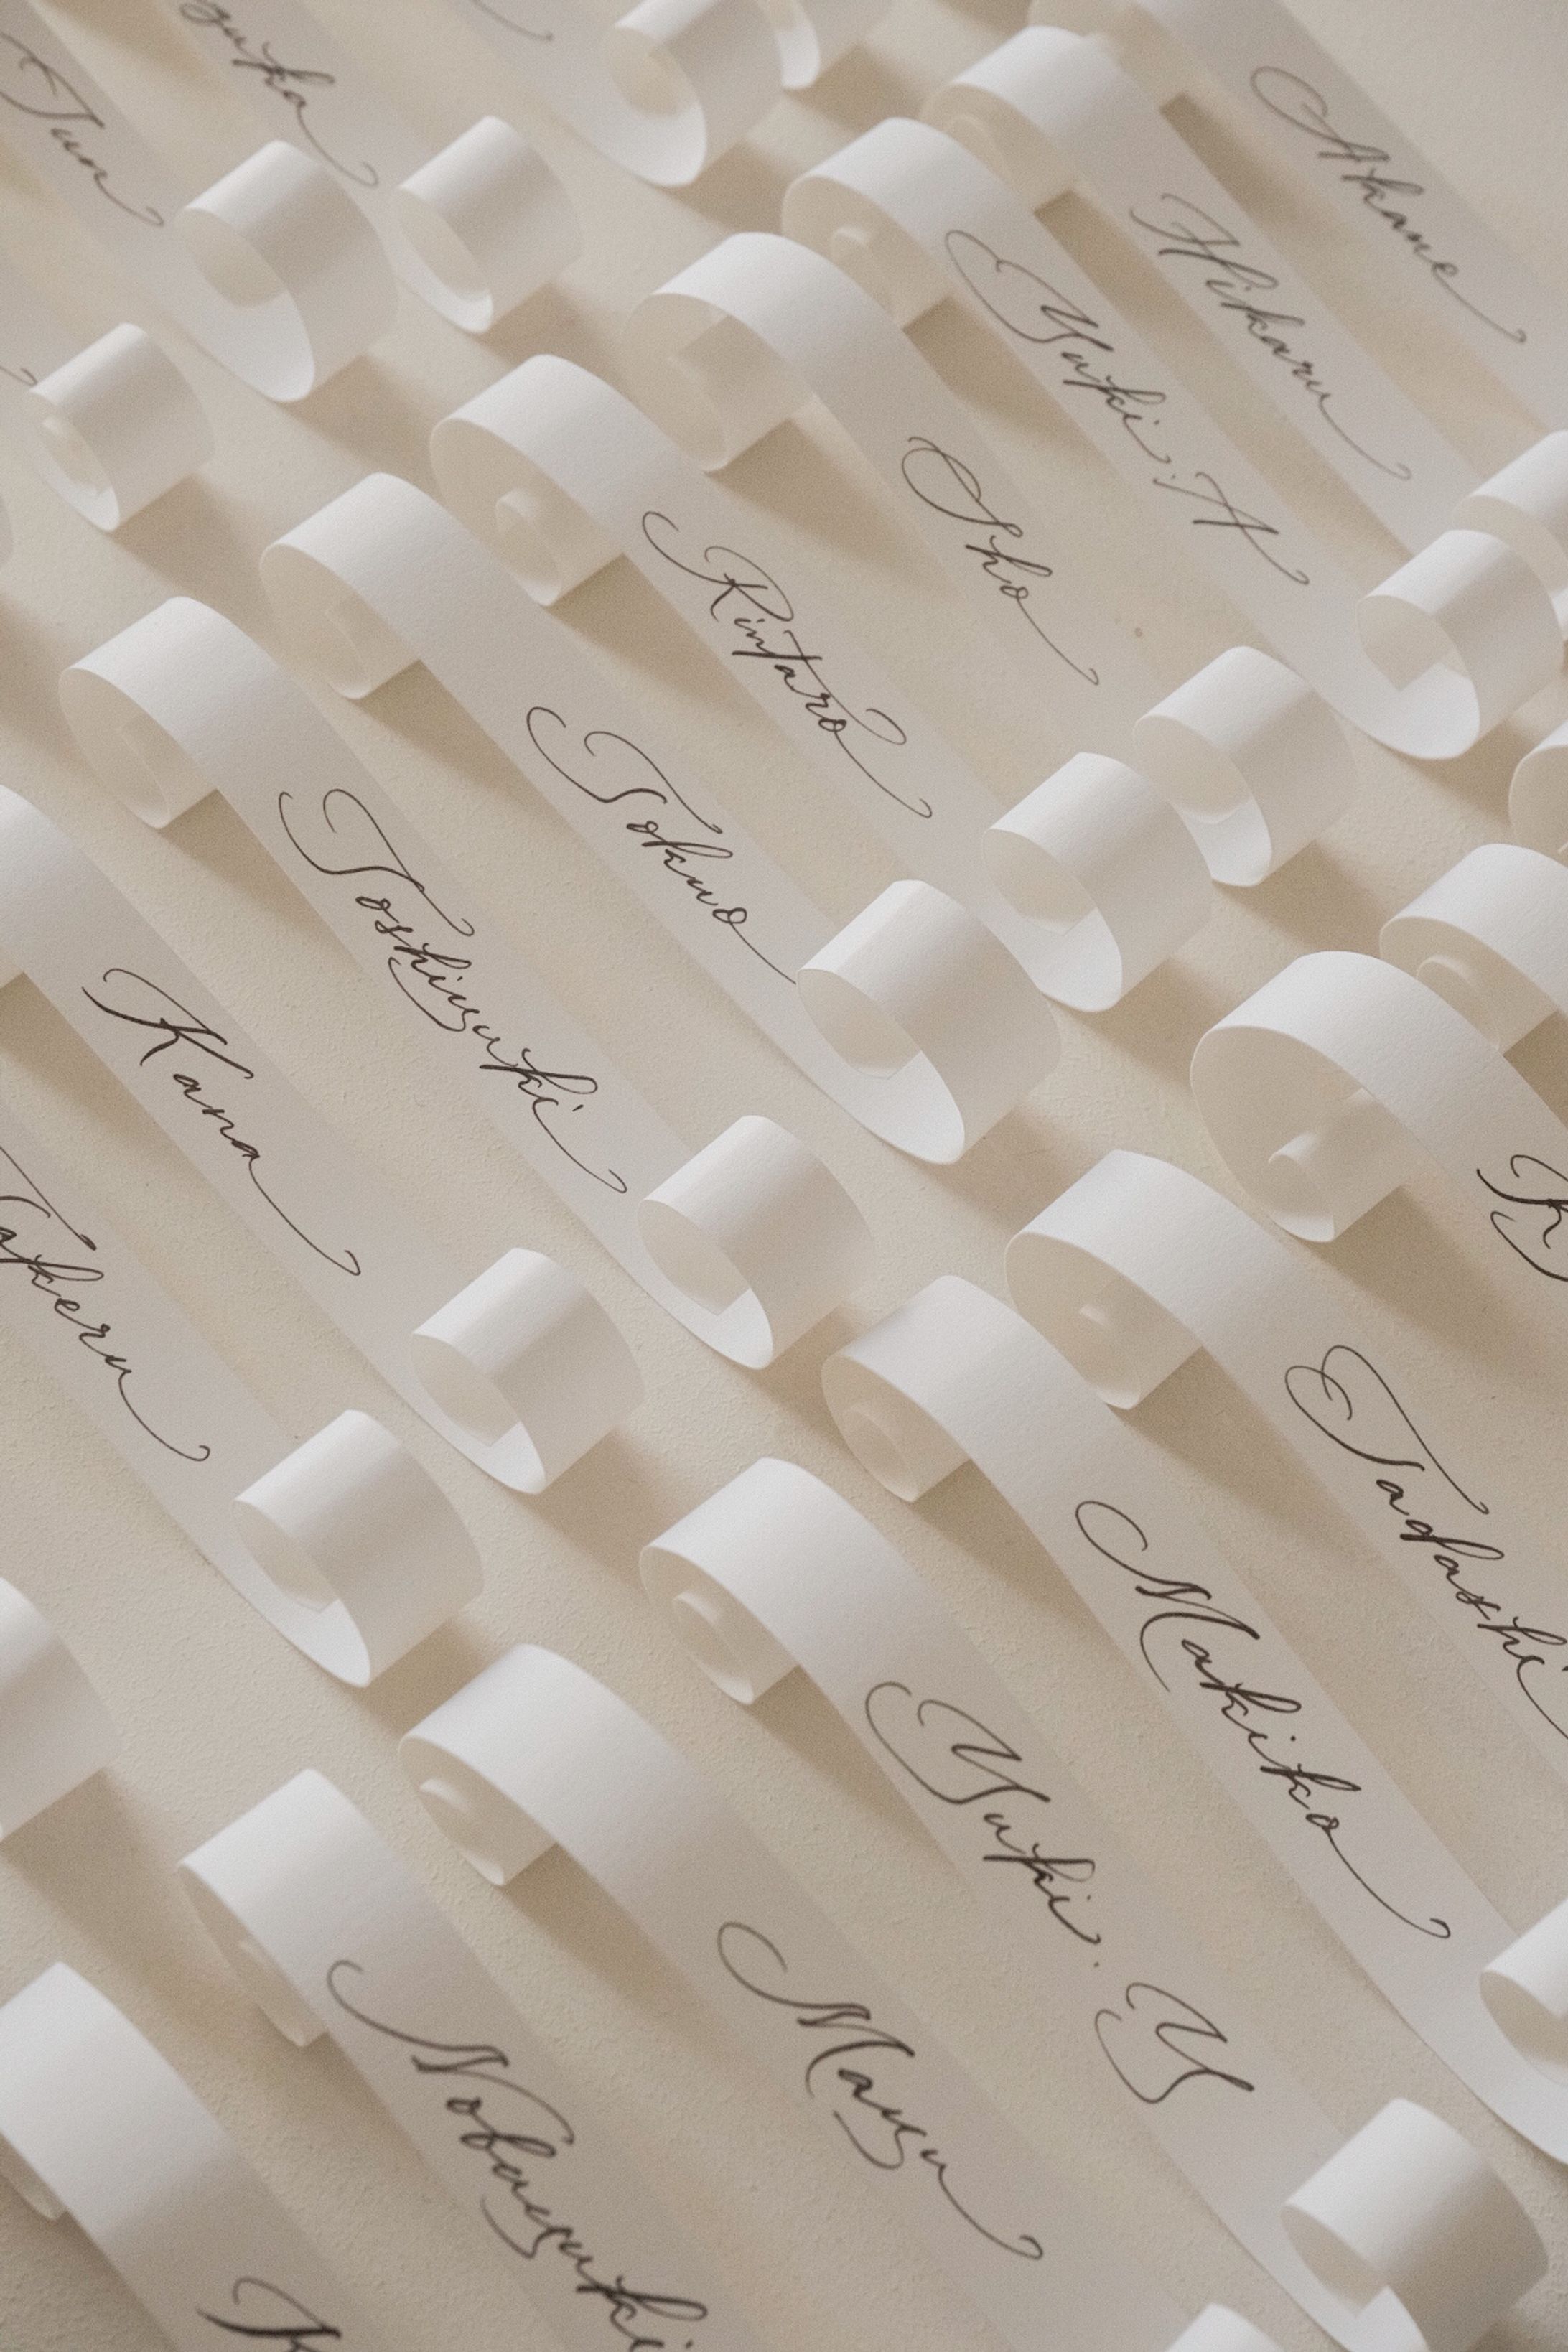 Jun
Akane
Hikaru
Yuki.A
Sho
Rintaro
Tokuo
Toshiyuki
Kana
Takeru
Tadashi
Makiko
Yuki.Y
Mayu
Nobuyuki